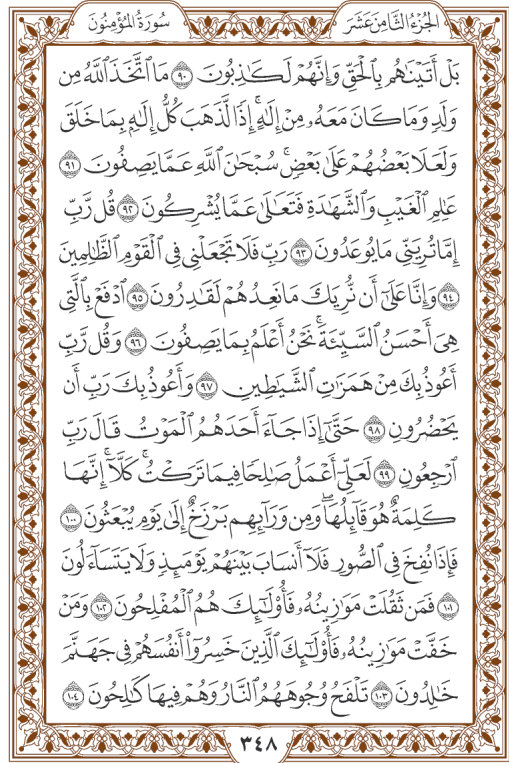 الجزء الثامن عشر
سورة المؤمنون
بَلْ أَتَيْنَٰهُم بِٱلْحَقِّ وَإِنَّهُمْ لَكَٰذِبُونَ ٩٠ مَا ٱتَّخَذَ ٱللَّهُ مِن
وَلَدٍ وَمَا كَانَ مَعَهُۥ مِنْ إِلَٰهٍ ۚ إِذًا لَّذَهَبَ كُلُّ إِلَٰهٍۭ بِمَا خَلَقَ
وَلَعَلَا بَعْضُهُمْ عَلَىٰ بَعْضٍ ۚ سُبْحَٰنَ ٱللَّهِ عَمَّا يَصِفُونَ ٩١
عَٰلِمِ ٱلْغَيْبِ وَٱلشَّهَٰدَةِ فَتَعَٰلَىٰ عَمَّا يُشْرِكُونَ ٩٢ قُل رَّبِّ
إِمَّا تُرِيَنِّى مَا يُوعَدُونَ ٩٣ رَبِّ فَلَا تَجْعَلْنِى فِى ٱلْقَوْمِ ٱلظَّٰلِمِينَ
٩٤ وَإِنَّا عَلَىٰٓ أَن نُّرِيَكَ مَا نَعِدُهُمْ لَقَٰدِرُونَ ٩٥ ٱدْفَعْ بِٱلَّتِى
هِىَ أَحْسَنُ ٱلسَّيِّئَةَ ۚ نَحْنُ أَعْلَمُ بِمَا يَصِفُونَ ٩٦ وَقُل رَّبِّ
أَعُوذُ بِكَ مِنْ هَمَزَٰتِ ٱلشَّيَٰطِينِ ٩٧ وَأَعُوذُ بِكَ رَبِّ أَن
يَحْضُرُونِ ٩٨ حَتَّىٰٓ إِذَا جَآءَ أَحَدَهُمُ ٱلْمَوْتُ قَالَ رَبِّ
ٱرْجِعُونِ ٩٩ لَعَلِّىٓ أَعْمَلُ صَٰلِحًا فِيمَا تَرَكْتُ ۚ كَلَّآ ۚ إِنَّهَا
كَلِمَةٌ هُوَ قَآئِلُهَا ۖ وَمِن وَرَآئِهِم بَرْزَخٌ إِلَىٰ يَوْمِ يُبْعَثُونَ ١٠٠
فَإِذَا نُفِخَ فِى ٱلصُّورِ فَلَآ أَنسَابَ بَيْنَهُمْ يَوْمَئِذٍ وَلَا يَتَسَآءَلُونَ
١٠١ فَمَن ثَقُلَتْ مَوَٰزِينُهُۥ فَأُو۟لَٰٓئِكَ هُمُ ٱلْمُفْلِحُونَ ١٠٢ وَمَنْ
خَفَّتْ مَوَٰزِينُهُۥ فَأُو۟لَٰٓئِكَ ٱلَّذِينَ خَسِرُوٓا۟ أَنفُسَهُمْ فِى جَهَنَّمَ
خَٰلِدُونَ ١٠٣ تَلْفَحُ وُجُوهَهُمُ ٱلنَّارُ وَهُمْ فِيهَا كَٰلِحُونَ ١٠٤
٣٤٨